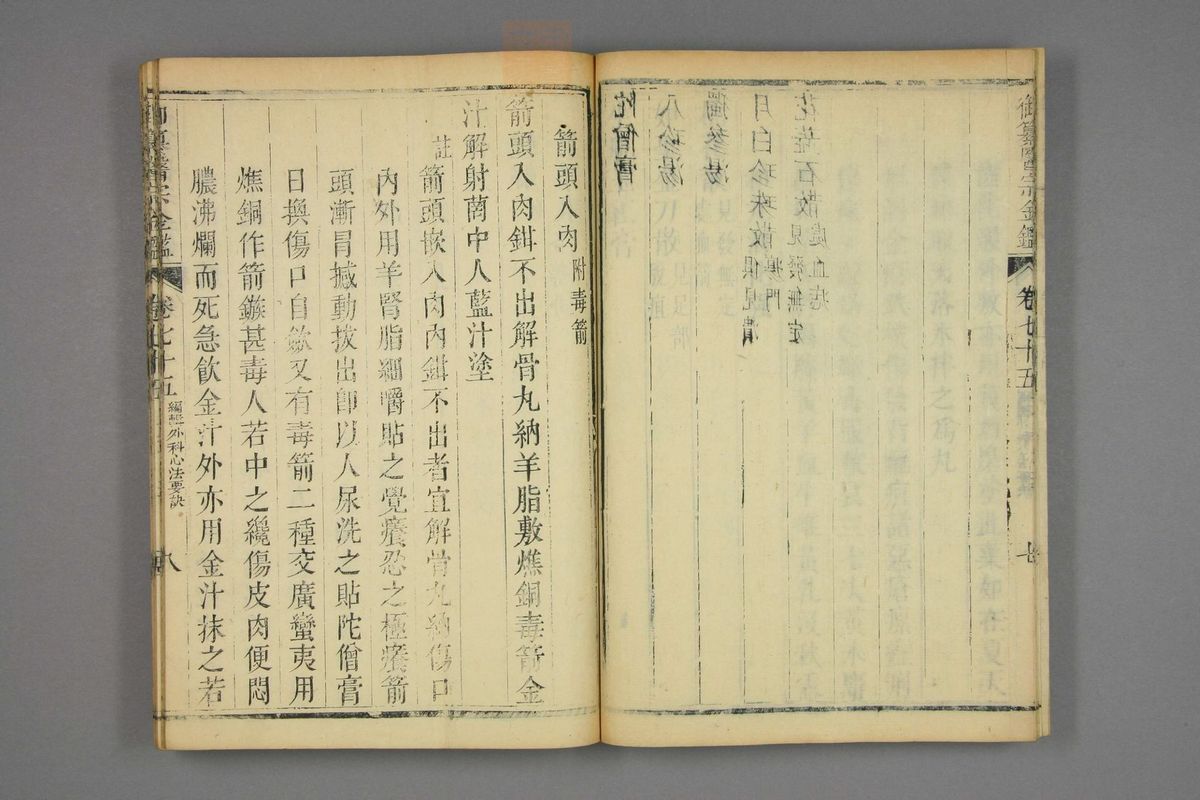 御纂醫宗金鑑
卷七十五
七
花蕊石散見發無定處血疙
月白珍珠散俱見潰瘍門
獨參湯
八珍湯
陀僧膏
箭頭入肉附毒箭
箭頭入肉鉗不出解骨丸納羊脂敷燋銅毒箭金
汁解射菌中人藍汁塗
註箭頭嵌入肉內鉗不出者宜解骨丸納傷口
內外用羊腎脂細嚼貼之覺癢忍之極癢箭
頭漸冒撼動拔出即以人尿洗之貼陀僧膏
日換傷口自歛又有毒箭二種交廣蠻夷用
燋銅作箭鏃甚毒人若中之纔傷皮肉便悶
膿沸爛而死急飲金汁外亦用金汁抹之若
御纂醫宗金鑑
卷七十五
編輯外科心法要訣
八